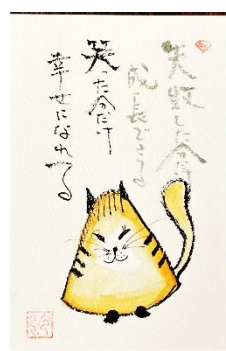 失敗した分だけ
成長できる
笑った分だけ
幸せになれてる